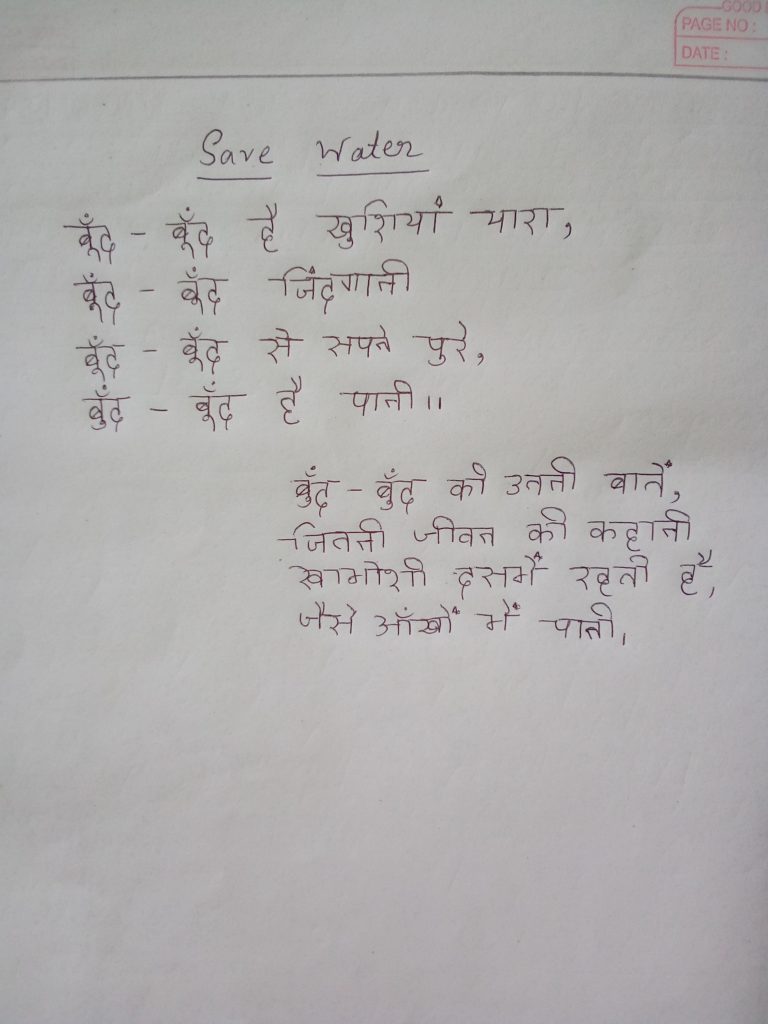 GOOD
PAGE NO :
DATE :
Save Water
बूँद - बूँद है खुशियां यारा,
बूँद - बूँद जिंदगानी
बूँद - बूँद से सपने पुरे,
बुँद - बूँद है पानी॥
बुँद - बुँद की उतनी बातें,
जितनी जीवन की कहानी
खामोशी इसमें रहती है,
जैसे आँखों में पानी,